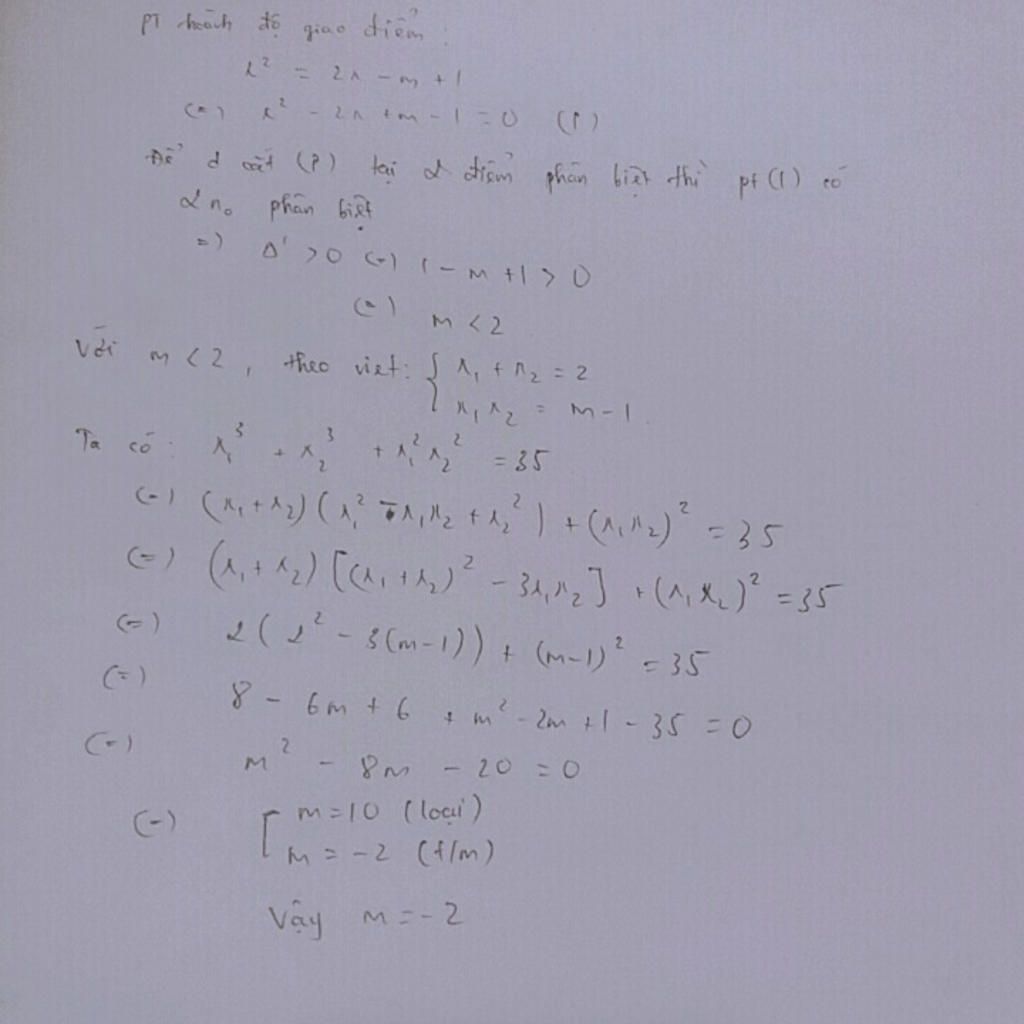 PT hoành độ giao điểm:
x² = 2x - m + 1
(=) x² - 2x + m - 1 = 0 (1)
Để d cắt (P) tại 2 điểm phân biệt thì pt (1) có
2 n₀ phân biệt
=) Δ' > 0 (=) 1 - m + 1 > 0
(=) m < 2
Với m < 2, theo viet: { x₁ + x₂ = 2
x₁x₂ = m - 1.
Ta có: x₁³ + x₂³ + x₁²x₂² = 35
(=) (x₁ + x₂)(x₁² - x₁x₂ + x₂²) + (x₁x₂)² = 35
(=) (x₁ + x₂)[(x₁ + x₂)² - 3x₁x₂] + (x₁x₂)² = 35
(=) 2(2² - 3(m-1)) + (m-1)² = 35
(=) 8 - 6m + 6 + m² - 2m + 1 - 35 = 0
(=) m² - 8m - 20 = 0
(=) [ m = 10 (loại)
m = -2 (t/m)
Vậy m = -2